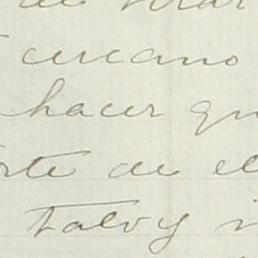 de
cercano
hacer qu
rte de el
Falvy i